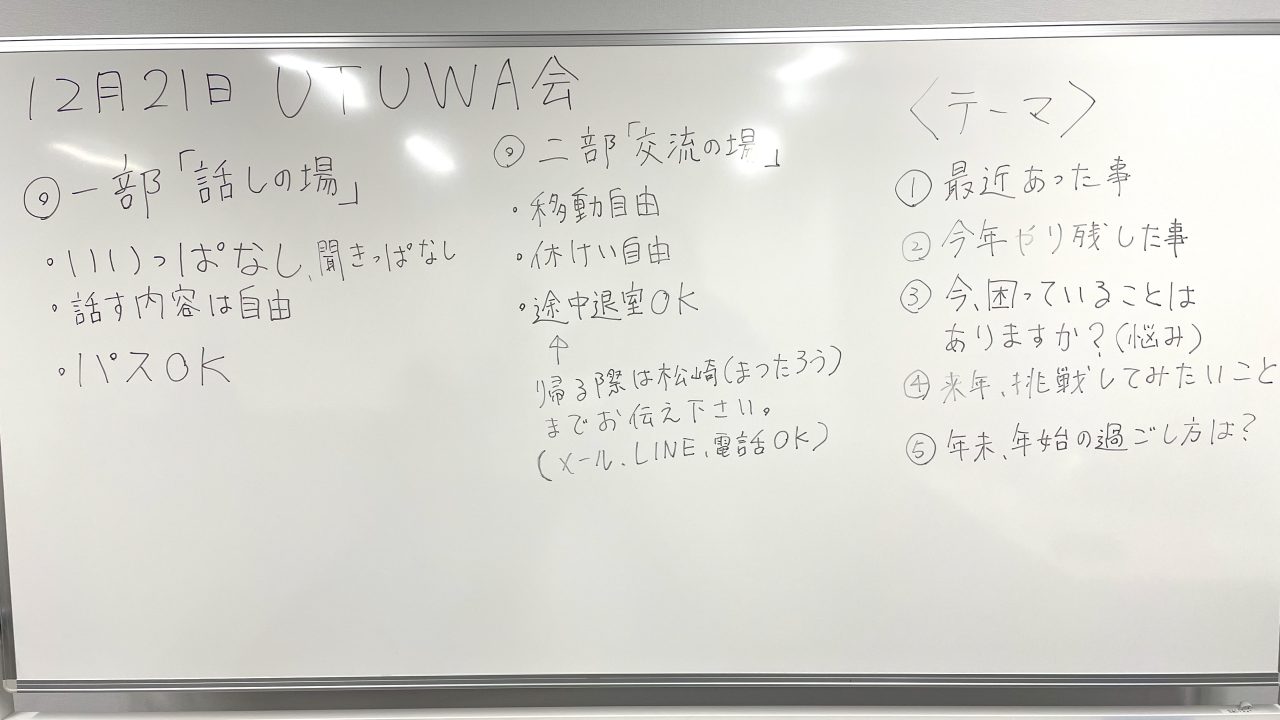 12月21日 UTUWA会
◎一部「話しの場」
・いいっぱなし、聞きっぱなし
・話す内容は自由
・パスOK
◎二部「交流の場」
・移動自由
・休けい自由
・途中退室OK
↑
帰る際は松崎(まつたろう)
までお伝え下さい。
(メール、LINE、電話OK)
〈テーマ〉
①最近あった事
②今年やり残した事
③今、困っていることは
ありますか?(悩み)
④来年、挑戦してみたいこと
⑤年末、年始の過ごし方は?